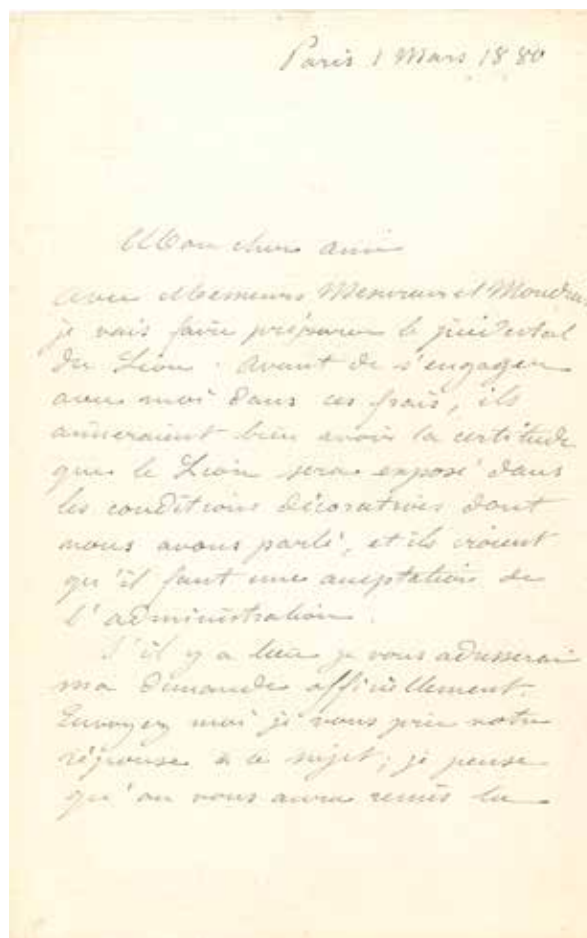 Paris 1 Mars 1880
Mon cher ami
Avec Messieurs et
je vais faire préparer le piédestal
du Lion. Avant de s'engager
avec moi dans ces frais, ils
aimeraient bien avoir la certitude
que le Lion sera exposé dans
les conditions décoratives dont
nous avons parlé, et ils croient
qu'il faut une acceptation de
l'administration.
S'il y a lieu je vous adresserai
ma demande officiellement.
Envoyez moi je vous prie votre
réponse à ce sujet; je pense
qu'on vous aura remis la